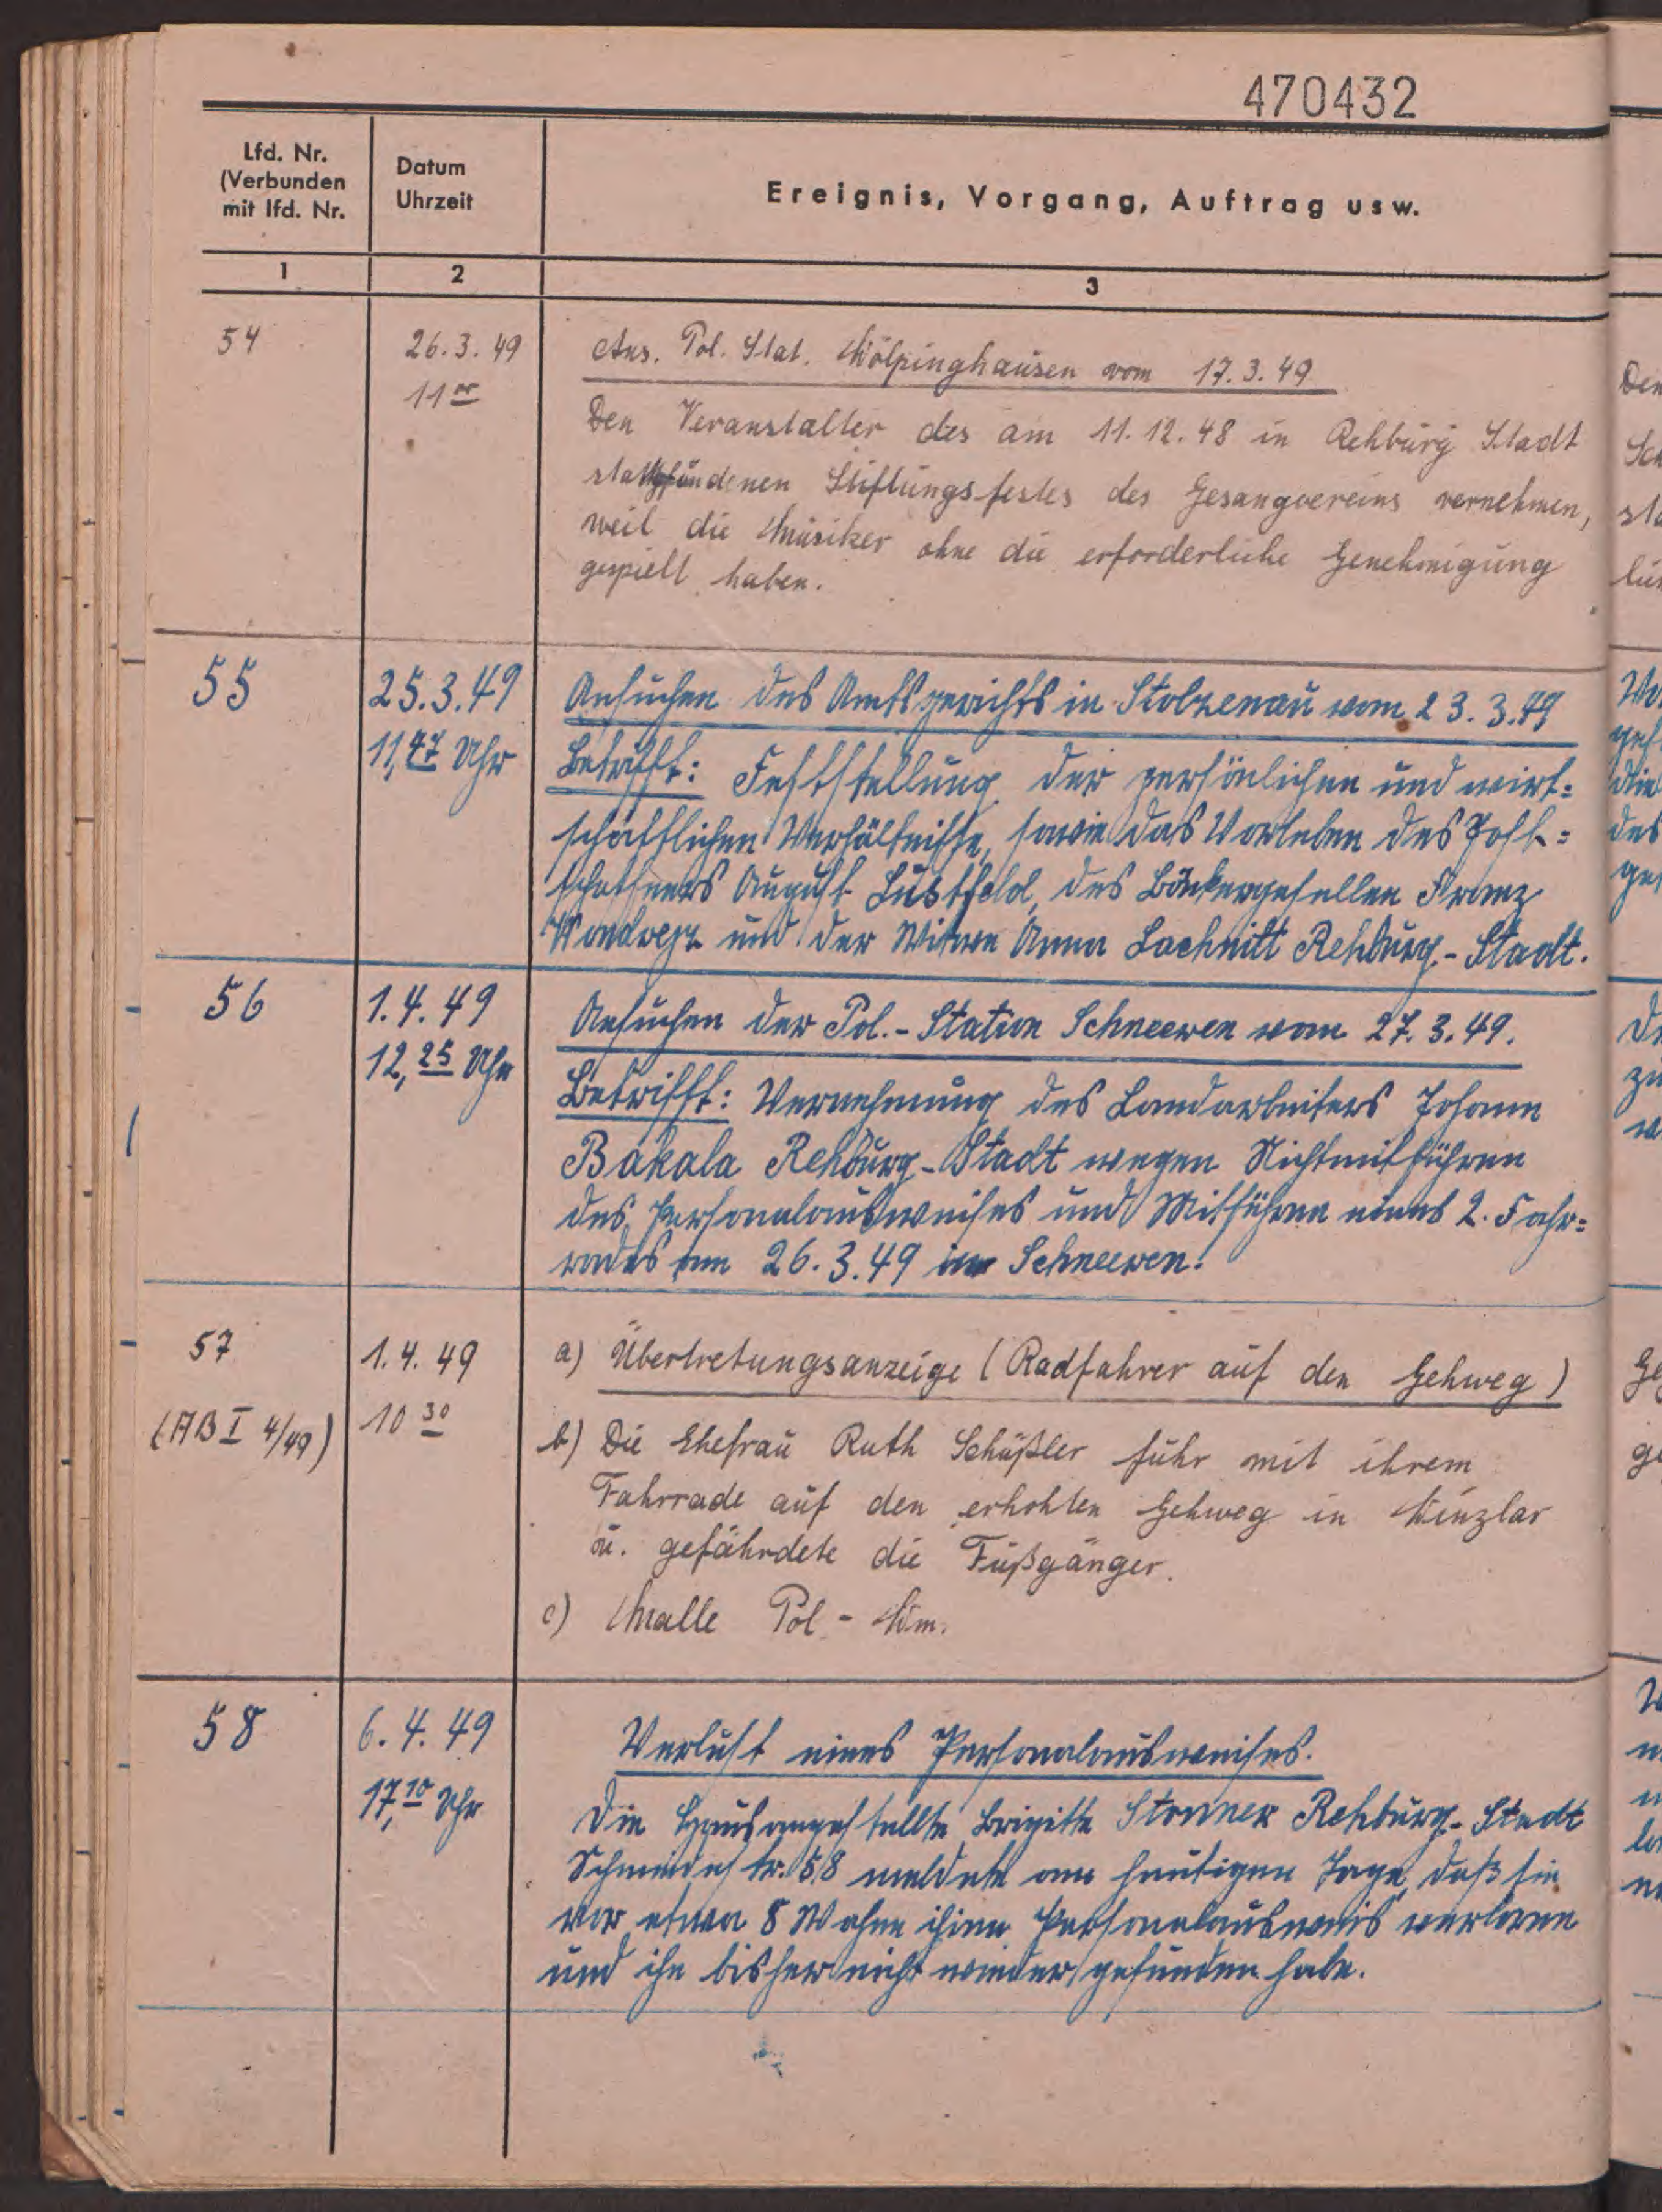 470432
Lfd. Nr.
(Verbunden
mit lfd. Nr.
Datum
Uhrzeit
Ereignis, Vorgang, Auftrag usw.
1
2
3
54
26.3.49
11⁰⁰
Ans. Pol. Stat. Wölpinghausen vom 17.3.49
Den Veranstalter des am 11.12.48 in Rehburg Stadt
stattgfundenen Stiftungsfestes des Gesangvereins vernehmen,
weil die Musiker ohne die erforderliche Genehmigung
gespielt haben.
55
25.3.49
11,47 Uhr
Ansuchen des Amtsgerichts in Stolzenau vom 23.3.49
Betrifft: Feststellung der persönlichen und wirt=
schaftlichen Verhältnisse, sowie das Vorleben des Post=
schaffners August Lustfeld, des Bäckergesellen Franz
und der Witwe Anna Lachnitt Rehburg.-Stadt.
56
1.4.49
12,25 Uhr
Ansuchen der Pol.-Station Schneeren vom 27.3.49.
Betrifft: Vernehmung des Landarbeiters Johann
Bakala Rehburg-Stadt wegen Nichtmitführen
des Personalausweises und Mitführen eines 2. Fahr=
rades am 26.3.49 in Schneeren.
57
(AB I 4/49)
1.4.49
10 30
a) Übertretungsanzeige (Radfahrer auf den Gehweg)
b) Die Ehefrau Ruth Schüßler fuhr mit ihrem
Fahrrade auf den erhohten Gehweg in Winzlar
u. gefährdete die Fußgänger.
c) Malle Pol-Wm.
58
6.4.49
17,10 Uhr
Verlust eines Personalausweises.
Die Hausangestellte Brigitte Stonner Rehburg-Stadt
Schmiedestr. 58 meldete am heutigen Tage, daß sie
vor etwa 8 Wochen ihren Personalausweis verloren
und ihn bisher nicht wieder gefunden habe.